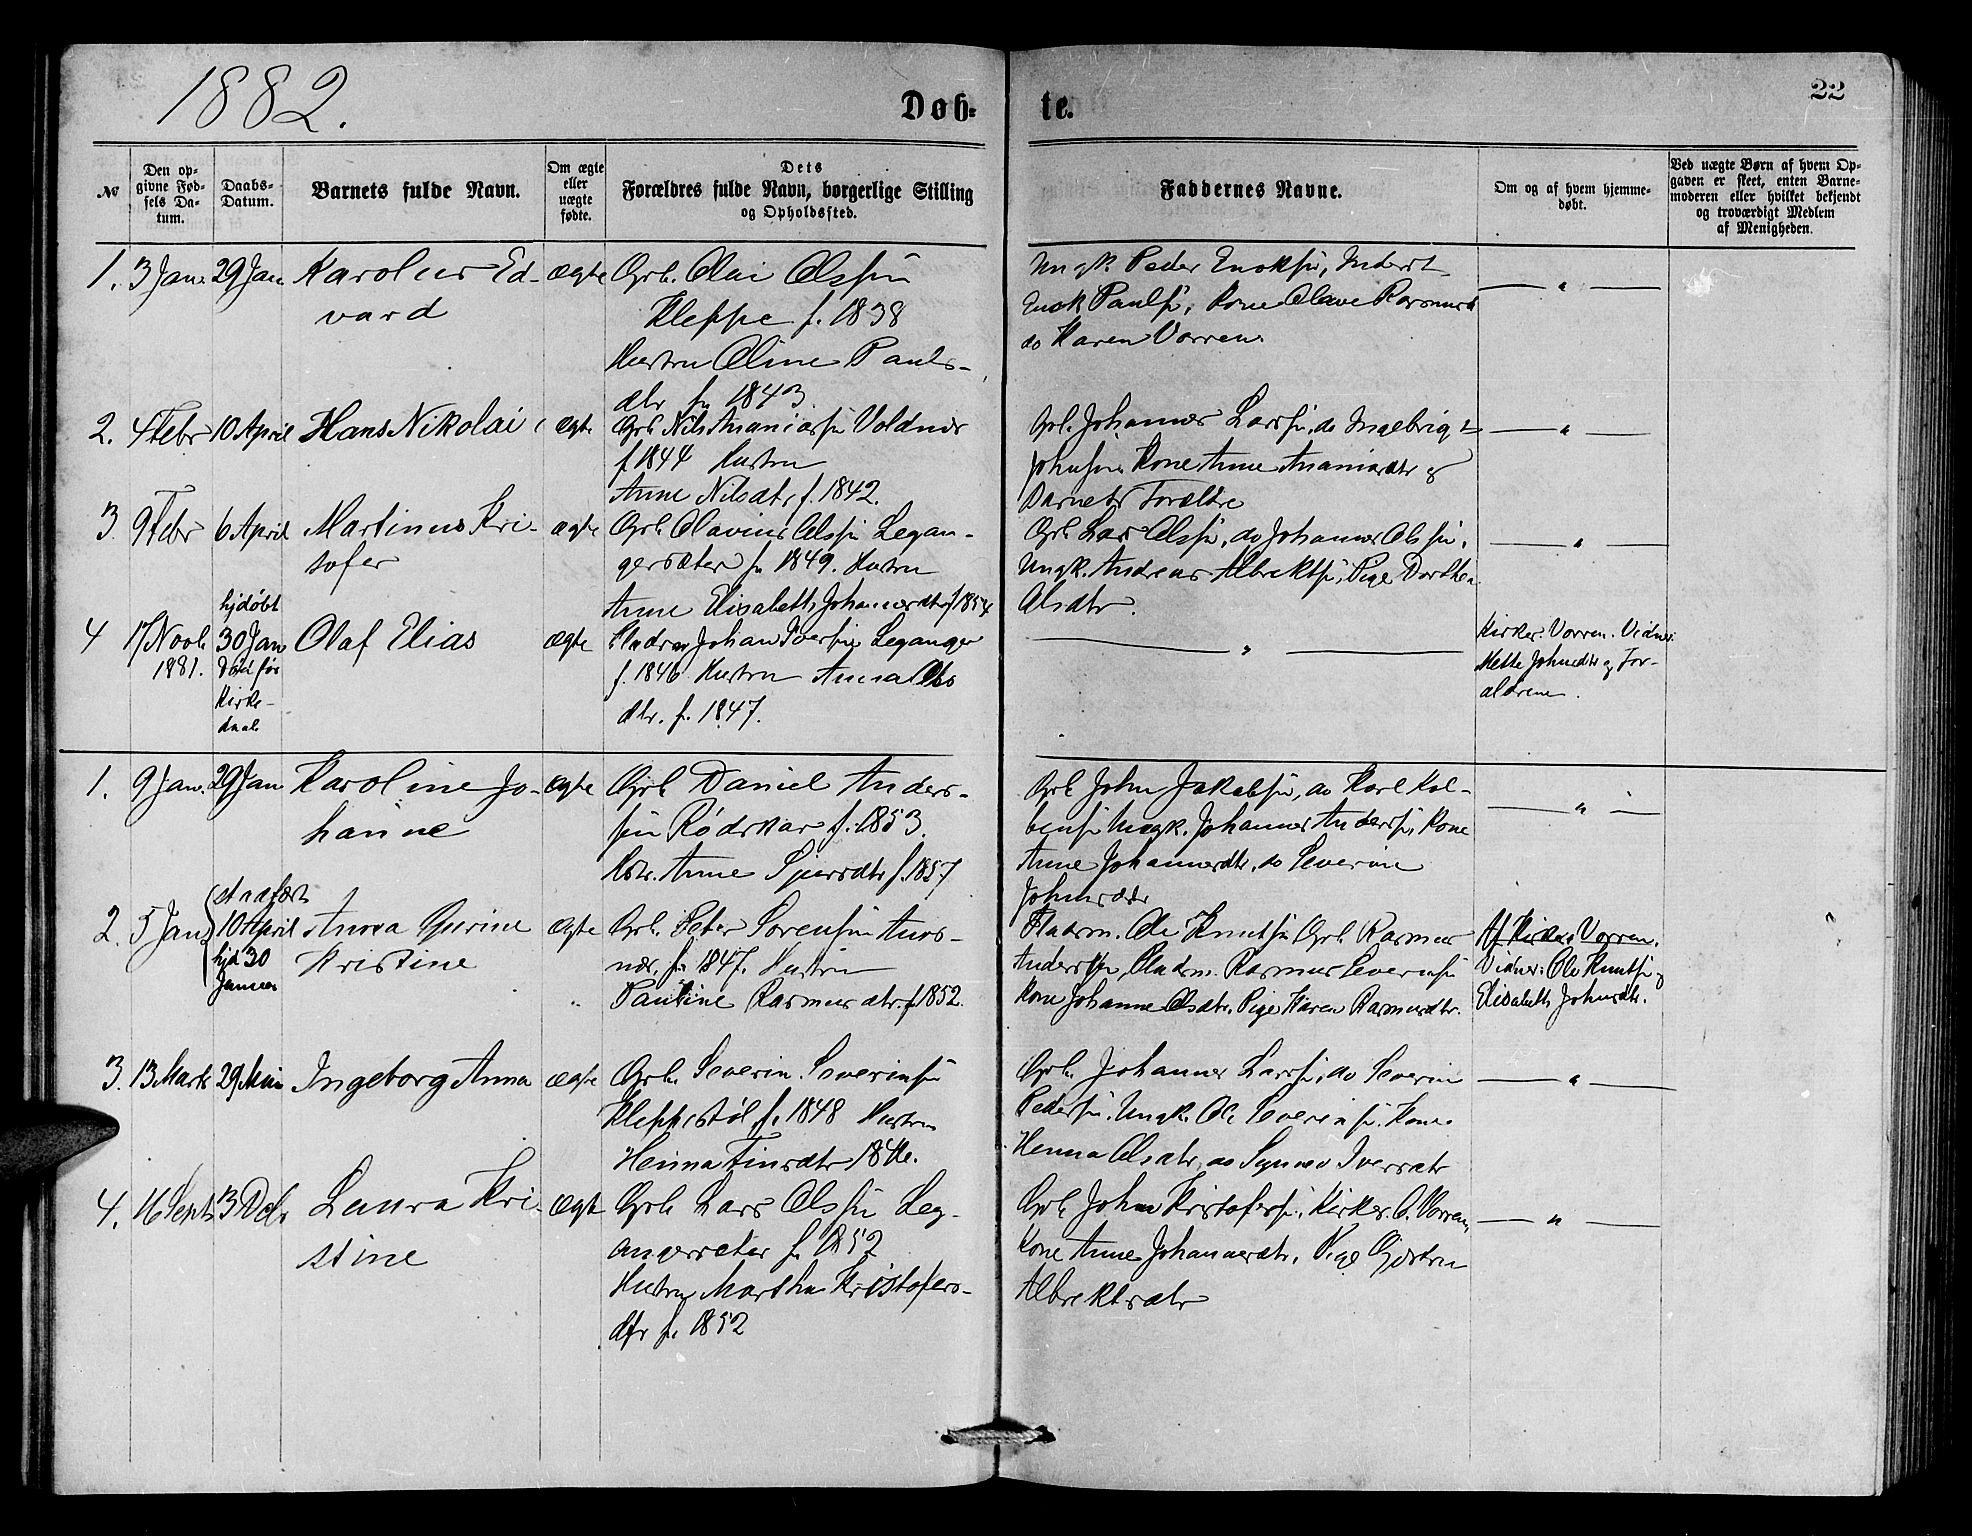 1882.
Døb-
te.
22
№
Den op-
givne Fød-
sels Da-
tum.
Daabs-
Datum.
Barnets fulde Navn.
Om ægte
eller
uægte
fødte.
Dets
Forældres fulde Navn, borgerlige Stilling
og Opholdssted.
Faddernes Navne.
Om og af hvem hjemme-
døbt.
Ved uægte Børn af hvem Op-
gaven er skeet, enten Barne-
moderen eller hvilket bekjendt
og troværdigt Medlem
af Menigheden.
1. 3 Jan. 29 Jan Karolus Ed-
vard
ægte
Grb. Olai Olssøn
Kleppe f. 1838
Hustru Oline Pauls-
dtr f. 1843.
Ungk. Peder Enoksøn, Inderst
Enok Paulsøn, Kone Olave Rasmusd
do Karen Vorren
— " —
2. 4 Febr 10 April Hans Nikolai
ægte
Grb Nils Ananiassøn Voldnes
f 1844 Hustru
Anne Nilsdtr f. 1842.
Grb. Johannes Larssøn, do Ingebrigt
Johnsøn Kone Anne Ananiasdtr og
Barnets Forældre
— " —
3. 9 Febr 6 April Martinus Kri-
sofer
ægte
Grb Olavius Olssøn Legan-
gersæter f. 1849. Hustru
Anne Elisabeth Johannesdtr f 1854
Grb Lars Olssøn, do Johannes Olssøn,
Ungk. Andreas Albrektsøn, Pige Dorthea
Olsdtr.
— " —
4 17 Novb
1881.
hjdøbt
30 Jan
Død før
Kirke-
daab
Olaf Elias
ægte
Pladsm Johan Iversøn Leganger
f. 1846 Hustru Anna Ols
dtr. f. 1847.
— " —
Kirkes. Vorren. Vidner
Mette Johnsdtr og For-
ældrene.
1. 9 Jan. 29 Jan Karoline Jo-
hanne
ægte
Grb Daniel Anders-
søn Rødskar f. 1853.
Hstr. Anne Sjursdtr f. 1857
Grb John Jakobsøn, do Karl Kol-
bensøn Ungk. Johannes Anderssøn, Kone
Anne Johannesdtr, do Severine
Johnsdtr
— " —
2. 5 Jan
stadfæst
10 April
hjd 30
Januar
Anna Gurine
Kristine
ægte
Grb. Peter Sørensøn Aurs-
nes, f. 1847. Hustru
Pauline Rasmusdtr. f 1852.
Pladsm. Ole Knutsøn Grb. Rasmus
Anderssøn, Pladsm. Rasmus Severinsøn
Kone Johanne Olsdtr. Pige Karen Rasmusdtr.
Af Kirkes. Vorren.
Vidner: Ole Knutsøn og
Elisabeth Johnsdtr.
3. 13 Marts 29 Mai Ingeborg Anna
ægte
Grb. Severin Severinsøn
Kleppestøl f. 1848 Hustru
Henna Finsdtr
Grb. Johannes Larssøn, do Severin
Pedersøn. Ungk. Ole Severinsøn. Kone
Henna Olsdtr, do Synnev Iversdtr
— " —
4. 16 Septb 3 Dcbr Laura Kri-
stine
ægte
Grb Lars Olssøn Leg-
angersæter f. 1852
Hustru Martha Kristofers-
dtr f. 1852
Grb John Kristofersøn, Kirkes. O. Vorren,
Kone Anne Johannesdtr, Pige Gjertru
Albrektsdtr
— " —